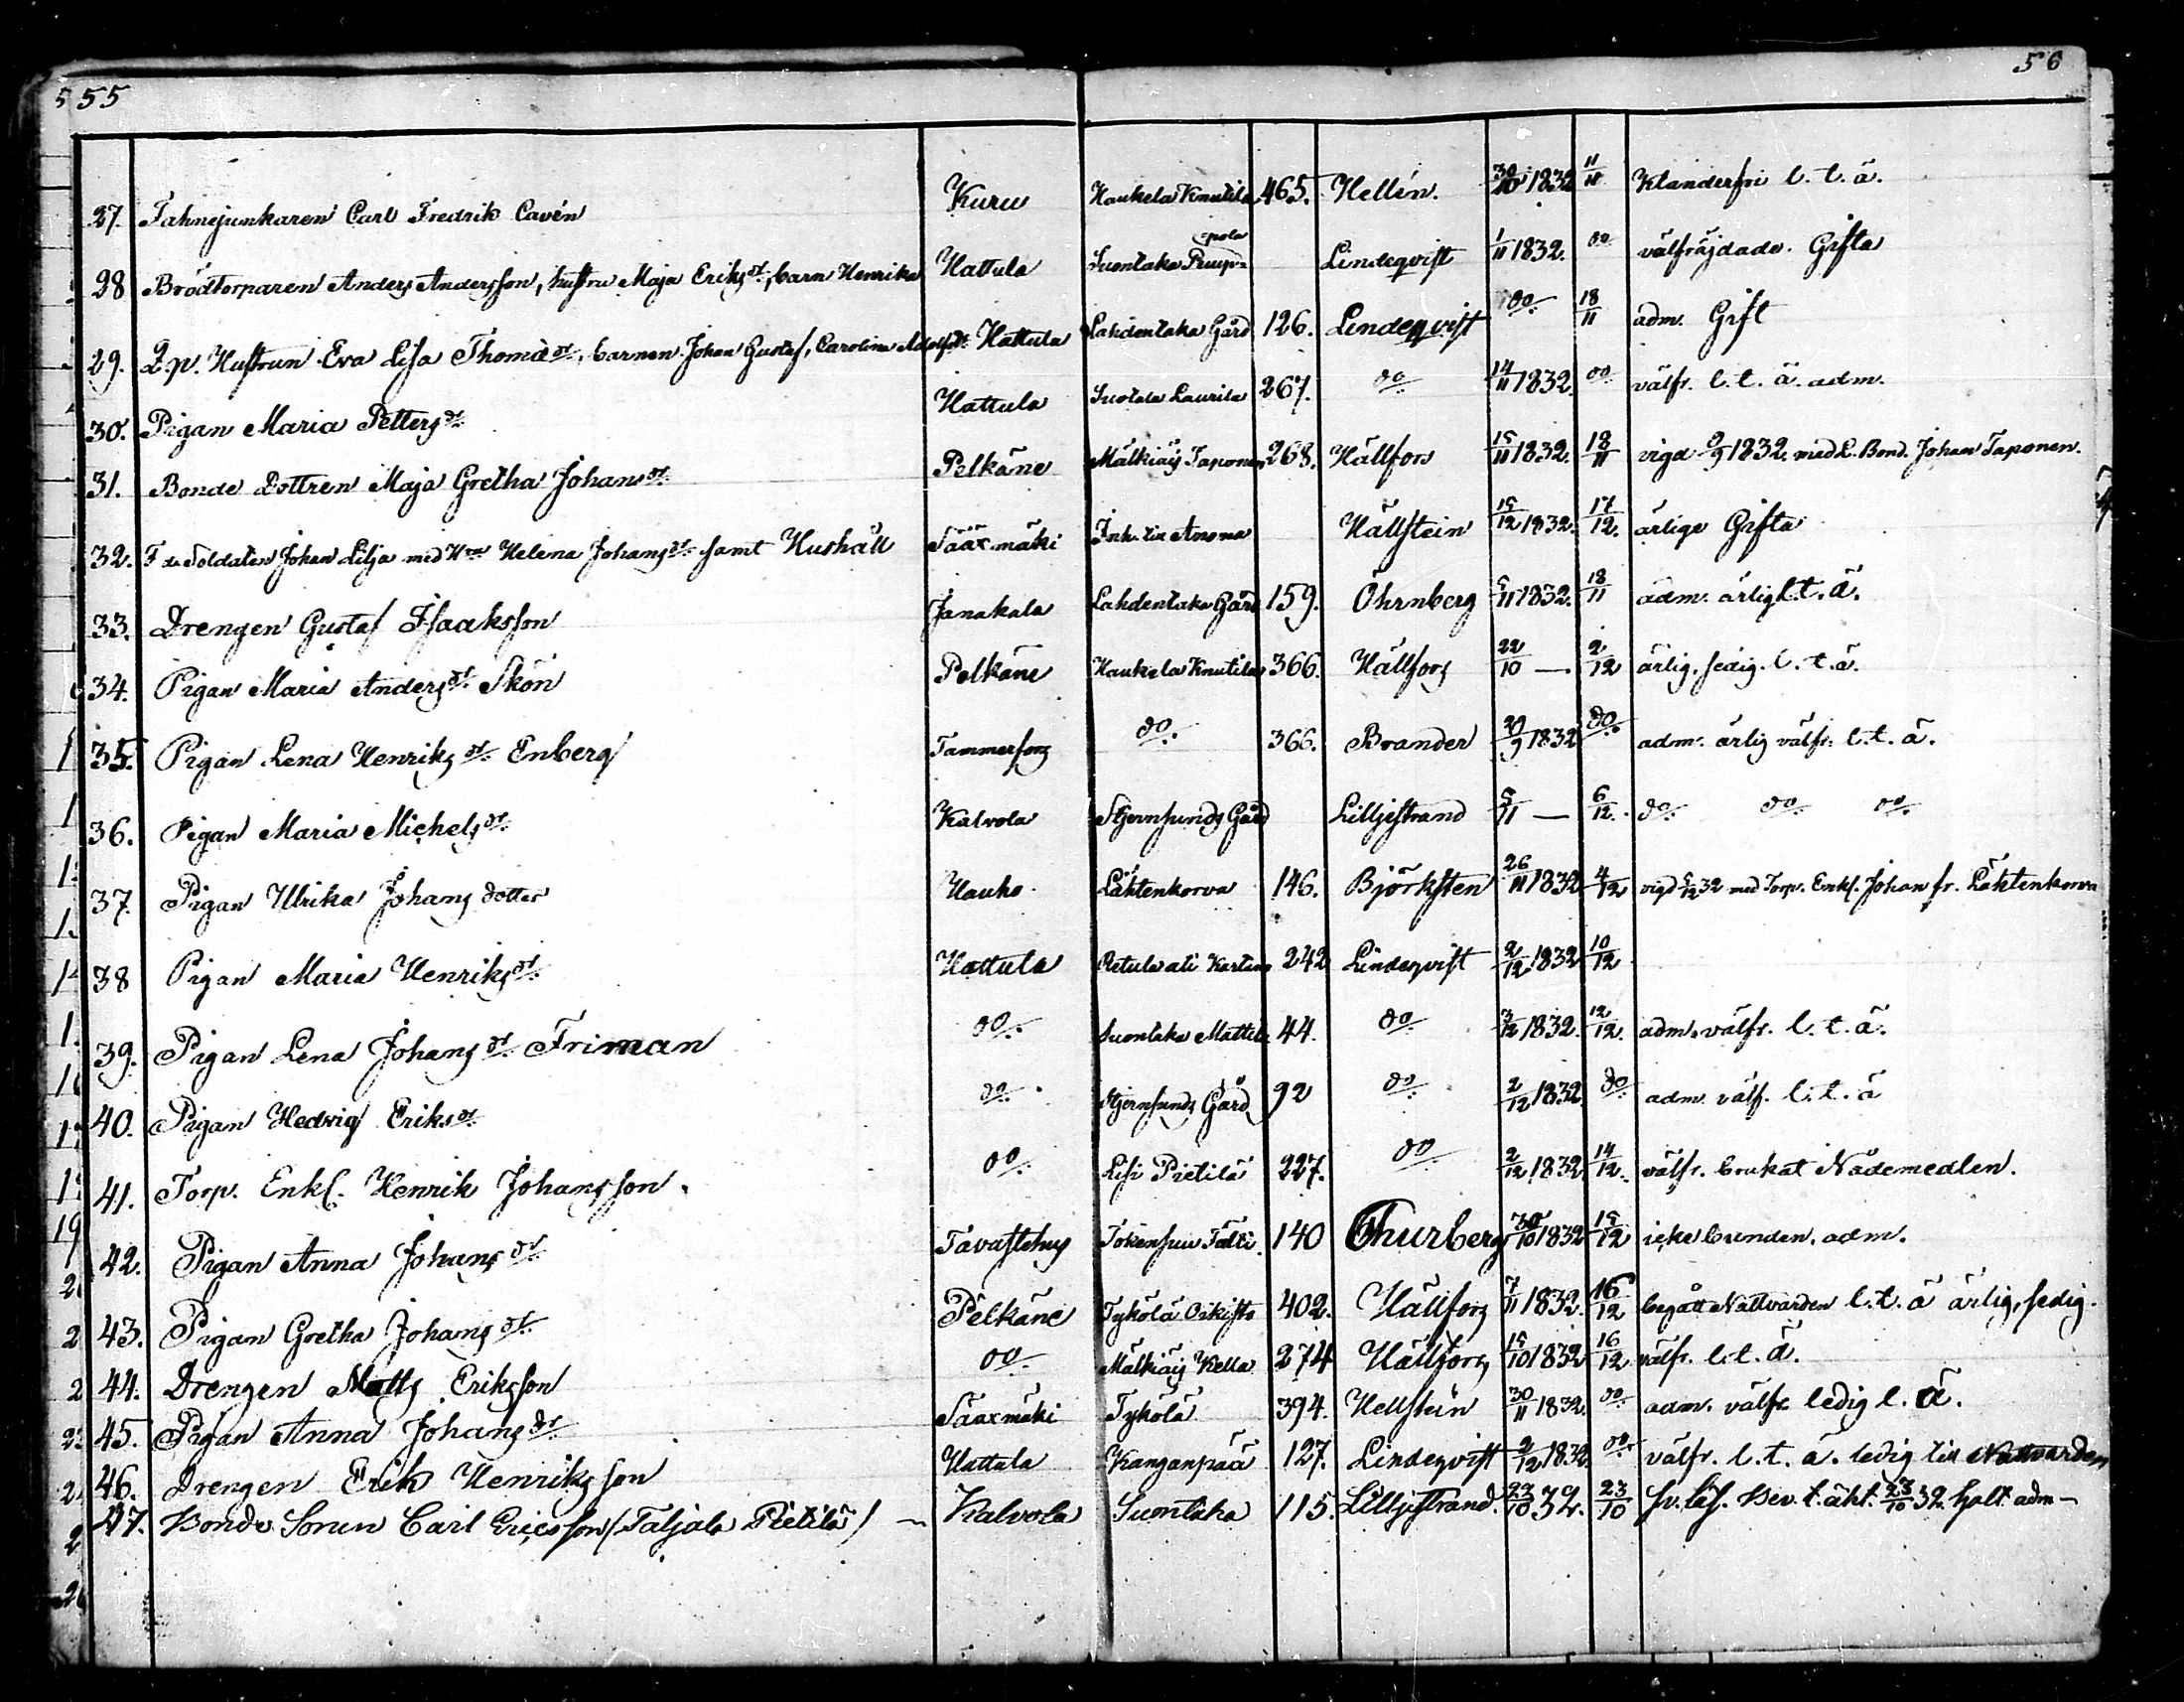 55
56
27. Fahnejunkaren Carl Fredrik Cavén Kuru Haukela Knutila 465. Hellén. 30/10 1832 11/11 Klanderfri l. t. ä.
28 Brödtorparen Anders Andersson, hustru Maja Eriksdr, barn Henrika Hattula Suontaka Lindeqvist 1/11 1832. do välfräjdade. Gifta
29. Hustrun Eva Lisa Thomædr, barnen Johan Gustaf, Carolina Hattula Lahdentaka Gård 126. Lindeqvist do 18/11 adm. Gift
30. Pigan Maria Pettersdr Hattula Laurila 267. do 14/11 1832. do välfr. l. t. ä. adm.
31. Bonde Dottren Maja Gretha Johansdr Pelkäne Mälkiäis Taponen 268. Hällfors 15/11 1832. 18/11 vigd 9/9 1832. med L. Bond. Johan Taponen.
32. F de Soldaten Johan Lilja med Hru Helena Johansdr samt Hushåll Sääxmäki Hällstein 15/12 1832. 17/12. ärlige Gifta
33. Drengen Gustaf Isaaksson Janakala Lahdentaka Gård 159. Öhrnberg 5/11 1832. 18/11 adm. ärlig l. t. ä.
34. Pigan Maria Andersdr Skön Pelkäne Haukela Knutila 366. Hällfors 22/10 — 2/12 ärlig. sedig. l. t. ä.
35. Pigan Lena Henriksdr Enberg Tammerfors do. 366. Brander 20/9 1832 do. adm. ärlig välfr. l. t. ä.
36. Pigan Maria Michelsdr Kalvola Stjernsunds Gård Lilljestrand 5/11 — 6/12. do do do
37. Pigan Ulrika Johans dotter Hauho Lähtenkorva 146. Björksten 26/11 1832 4/12 vigd 5/12 32 med Torp. Enkl. Johan fr. Lähtenkorva
38 Pigan Maria Henriksdr Hattula Retula ali 242 Lindeqvist 2/12 1832 10/12
39. Pigan Lena Johansdr Friman do. Suontaka Mattila 44. do 3/12 1832. 12/12. adm. välfr. l. t. ä.
40. Pigan Hedvig Eriksdr do. Stjernsunds Gård 92 do 2/12 1832 do adm. välf. l. t. ä
41. Torp. Enkl. Henrik Johansson. do. Pietilä 227. do 2/12 1832 14/12. välfr. brukat Nådemedlen.
42. Pigan Anna Johansdr Tavastehus 140 Thurberg 30/10 1832 15/12 icke bunden. adm.
43. Pigan Gretha Johansdr Pelkäne Tykölä 402. Hällfors 7/11 1832. 16/12 begått Nattvarden l. t. ä ärlig, sedig.
44. Drengen Matts Eriksson do. Mälkiäis Kella 274 Hällfors 15/10 1832 16/12. välfr. l. t. ä.
45. Pigan Anna Johansdr Sääxmäki Tykölä 394. Hellstein 30/11 1832. do adm. välfr. ledig l. ä.
46. Drengen Erik Henriksson Hattula Kanganpää 127. Lindeqvist 2/12 1832. do. välfr. l. t. ä. ledig till Nattvarden
47. Bonde Sonen Carl Ericsson (Taljala Pietilä) — Kalvola Suontaka 115. Lilljestrand. 23/10 32. 23/10 Bev. t. äkt. 23/10 32. adm —